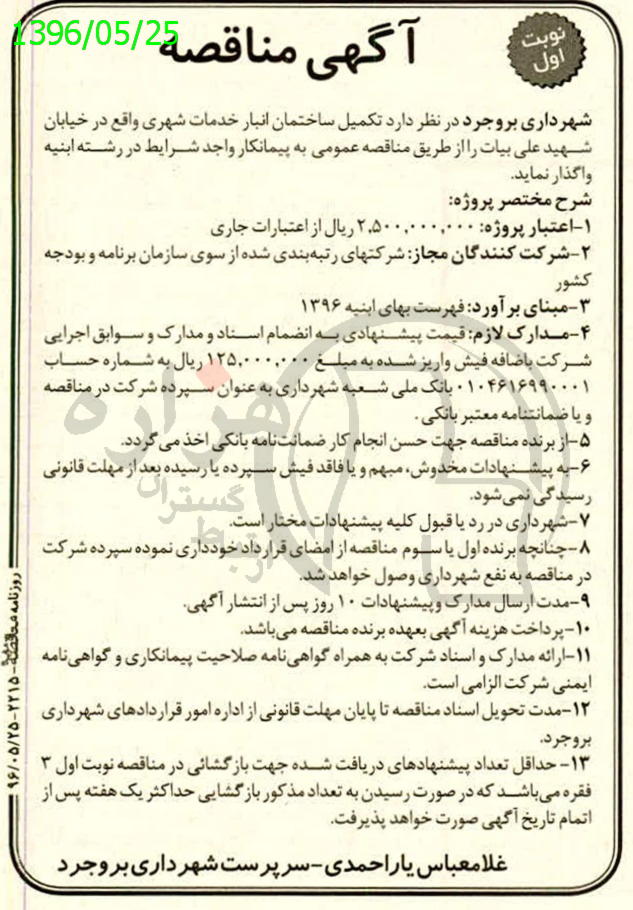 1396/05/25
نوبت
اول
آگهی مناقصه
شهرداری بروجرد در نظر دارد تکمیل ساختمان انبار خدمات شهری واقع در خیابان
شهید علی بیات را از طریق مناقصه عمومی به پیمانکار واجد شرایط در رشته ابنیه
واگذار نماید.
شرح مختصر پروژه:
۱-اعتبار پروژه: ۲,۵۰۰,۰۰۰,۰۰۰ ریال از اعتبارات جاری
۲-شرکت کنندگان مجاز: شرکتهای رتبه‌بندی شده از سوی سازمان برنامه و بودجه
کشور
۳-مبنای برآورد: فهرست بهای ابنیه ۱۳۹۶
۴-مدارک لازم: قیمت پیشنهادی به انضمام اسناد و مدارک و سوابق اجرایی
شرکت باضافه فیش واریز شده به مبلغ ۱۲۵,۰۰۰,۰۰۰ ریال به شماره حساب
۰۱۰۴۶۱۶۹۹۰۰۰۱ بانک ملی شعبه شهرداری به عنوان سپرده شرکت در مناقصه
و یا ضمانتنامه معتبر بانکی.
۵-از برنده مناقصه جهت حسن انجام کار ضمانت‌نامه بانکی اخذ می گردد.
۶-به پیشنهادات مخدوش، مبهم و یا فاقد فیش سپرده یا رسیده بعد از مهلت قانونی
رسیدگی نمی‌شود.
۷-شهرداری در رد یا قبول کلیه پیشنهادات مختار است.
۸-چنانچه برنده اول یا سوم مناقصه از امضای قرارداد خودداری نموده سپرده شرکت
در مناقصه به نفع شهرداری وصول خواهد شد.
۹-مدت ارسال مدارک و پیشنهادات ۱۰ روز پس از انتشار آگهی.
۱۰-پرداخت هزینه آگهی بعهده برنده مناقصه می‌باشد.
۱۱-ارائه مدارک و اسناد شرکت به همراه گواهی‌نامه صلاحیت پیمانکاری و گواهی‌نامه
ایمنی شرکت الزامی است.
۱۲-مدت تحویل اسناد مناقصه تا پایان مهلت قانونی از اداره امور قراردادهای شهرداری
بروجرد.
۱۳- حداقل تعداد پیشنهادهای دریافت شده جهت بازگشائی در مناقصه نوبت اول ۳
فقره می‌باشد که در صورت رسیدن به تعداد مذکور بازگشایی حداکثر یک هفته پس از
اتمام تاریخ آگهی صورت خواهد پذیرفت.
غلامعباس یاراحمدی-سرپرست شهرداری بروجرد
روزنامه مناقصه-۲۲۱۵-۹۶/۰۵/۲۵
هزاره
گستران